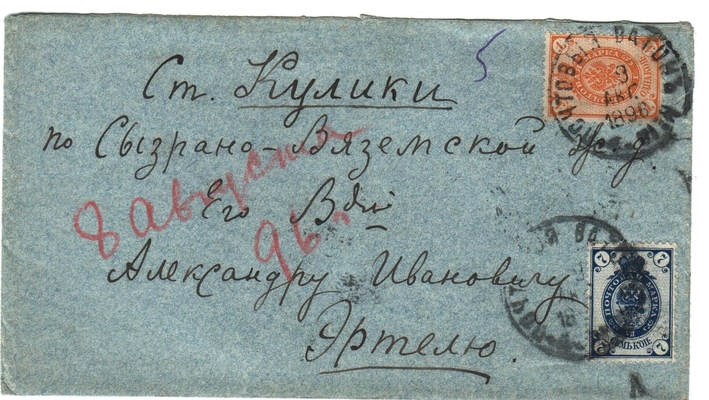 5
Ст. Кулики
по Сызрано-Вяземской ж. д.
Его Вдію
Александру Ивановичу
Эртелю.
8 августа
96 г.
ПОЧТОВЫЙ ВАГОНЪ
9
АВГ.
1896
ПОЧТОВ МАРКА
7 7
СЕМЬ КОП.
7 7